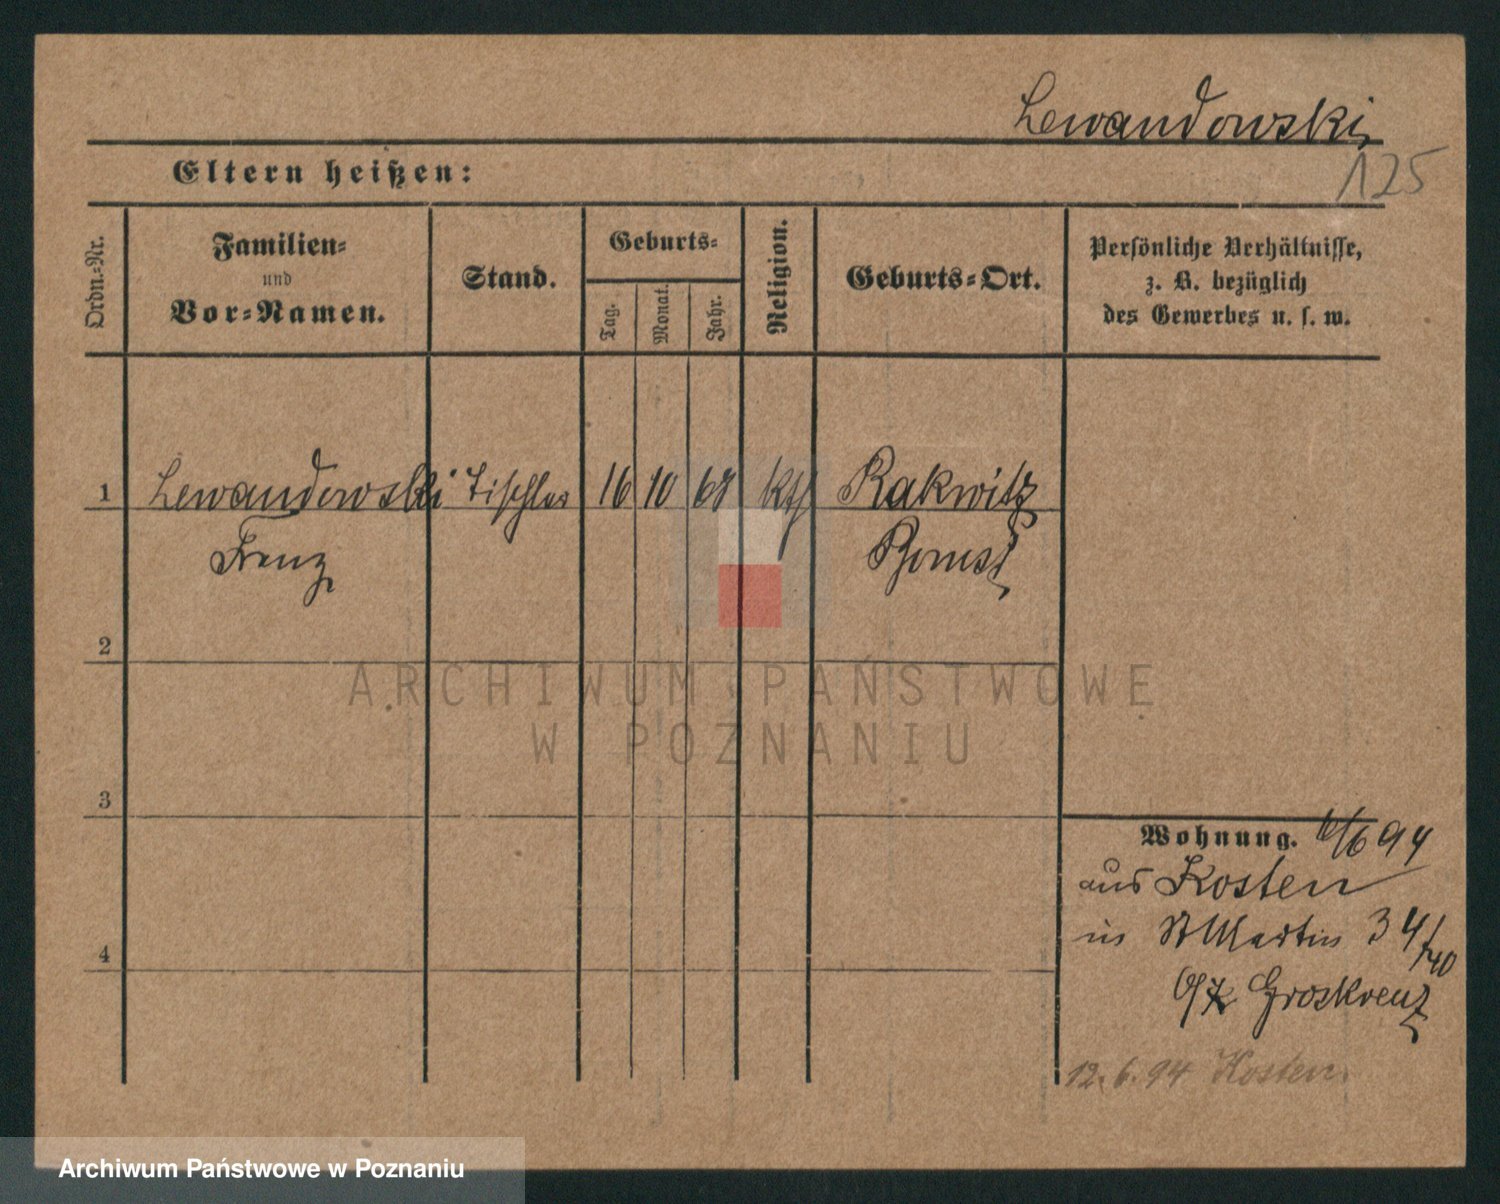 Lewandowski
125
Eltern heißen:
Ordn.-Nr.
Familien-
und
Vor-Namen.
Stand.
Geburts-
Tag.
Monat.
Jahr.
Religion.
Geburts-Ort.
Persönliche Verhältnisse,
z. B. bezüglich
des Gewerbes u. s. w.
1 Lewandowski Tischler 16 10 68 kth Rakwitz
Franz Bomst
2
3
4
Wohnung. 6/6 94
aus Kosten
in St Martin 34/40
b/ Groskreuz
12.6.94 Kosten.
ARCHIWUM PAŃSTWOWE
W POZNANIU
Archiwum Państwowe w Poznaniu